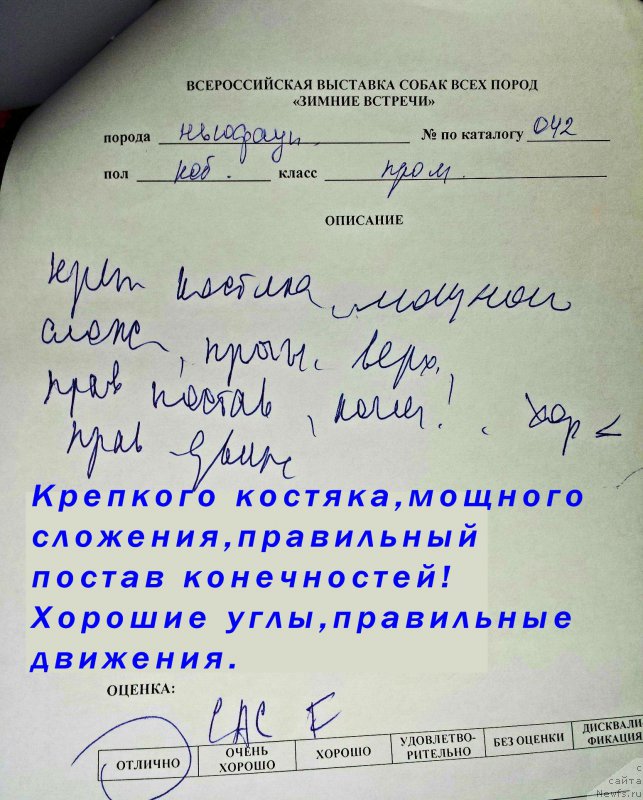 ВСЕРОССИЙСКАЯ ВЫСТАВКА СОБАК ВСЕХ ПОРОД
«ЗИМНИЕ ВСТРЕЧИ»
порода ньюфаун. № по каталогу 042
пол коб. класс пром.
ОПИСАНИЕ
креп костяка, мощной
слож, прям. верх,
прав постав, конеч!. хор <
прав движ
Крепкого костяка,мощного
сложения,правильный
постав конечностей!
Хорошие углы,правильные
движения.
ОЦЕНКА:
CAC
ОТЛИЧНО ОЧЕНЬ ХОРОШО ХОРОШО УДОВЛЕТВО-РИТЕЛЬНО БЕЗ ОЦЕНКИ ДИСКВАЛИ-ФИКАЦИЯ
с
сайта
Newfs.ru